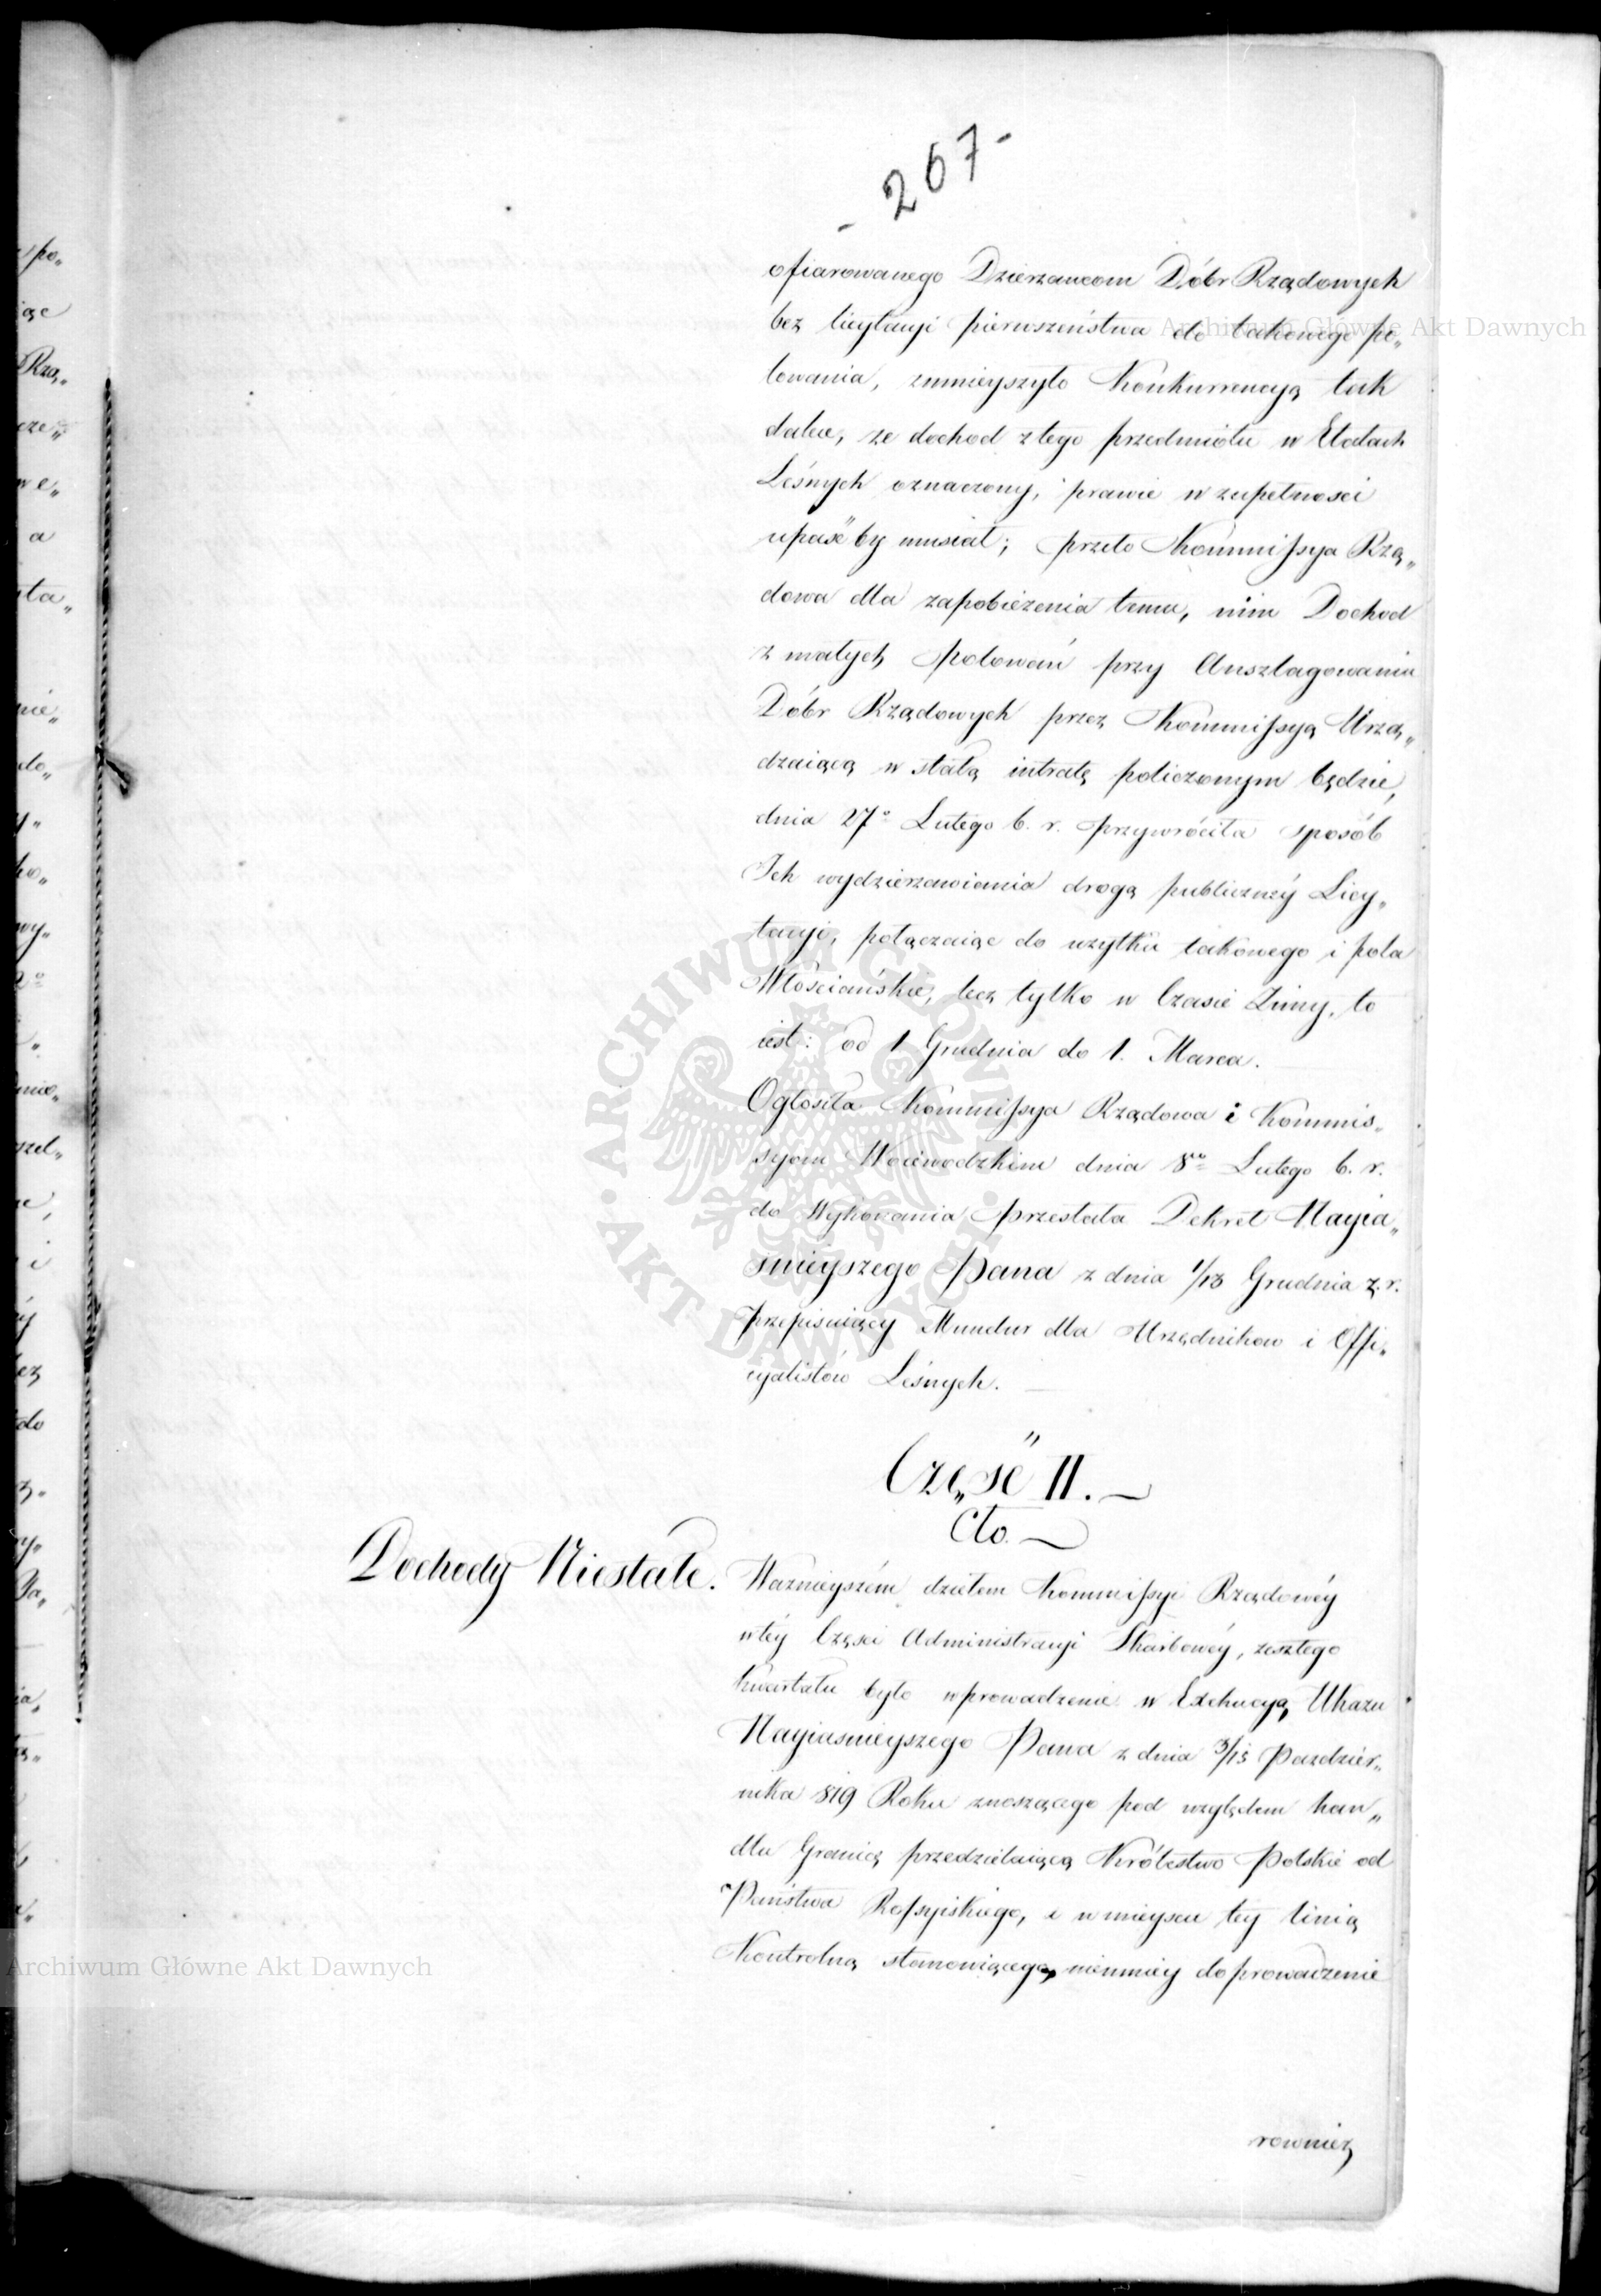 - 267 -
ofiarowanego Dzierzawcom Dóbr Rządowych
bez licytacyi pierwszeństwa do takowego po„
lowania, zmnieyszyło Konkurrencyą tak
dalece, że dochod z tego przedmiotu w Etatach
Leśnych oznaczony, prawie w zupełnosci
upaść by musiał; przeto Kommissya Rzą„
dowa dla zapobieżenia temu, nim Dochod
z małych polowań przy Anszlagowaniu
Dóbr Rządowych przez Kommissyą Urzą„
dzaiącą w stałą intratę policzonym będzie,
dnia 27º Lutego b. r. przywróciła sposób
Ich wydzierzawiania drogą publiczney Licy„
tacyi, połączaiąc do uzytku takowego i pola
Włościańskie, lecz tylko w Czasie Zimy, to
iest: od 1 Grudnia do 1. Marca.
Ogłosiła Kommissya Rządowa i Kommis„
syom Woiewodzkim dnia 8º Lutego b. r.
do Wykonania przesłała Dekret Nayia„
śnieyszego Pana z dnia 1/13 Grudnia z. r.
przepisuiący Mundur dla Urzędnikow i Offi„
cyalistów Leśnych.
Część II.
Cło.
Dochody Niestałe.
Ważnieyszém dziełem Kommissyi Rządowéy
w téy Części Administracyi Skarbowéy, zeszłego
kwartału było wprowadzenie w Exekucyą Ukazu
Nayiasnieyszego Pana z dnia 3/15 Pazdzier„
nika 819 Roku znoszącego pod względem han„
dlu Granicę przedzielaiącą Królestwo Polskie od
Państwa Rossyiskiego, i w mieyscu tey linią
Kontrolną stanowiącego, niemniey doprowadzenie
rownież
Archiwum Główne Akt Dawnych
Archiwum Główne Akt Dawnych
ARCHIWUM GŁÓWNE · AKT DAWNYCH ·